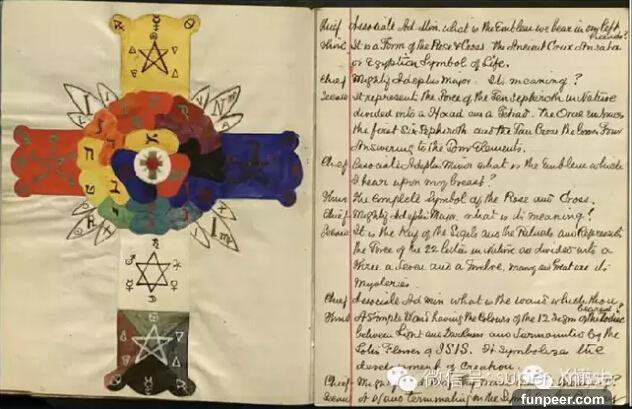 I
N
R
I
Chief Associate Ad. Min. what is the Emblem we bear in our left hands?
It is a Form of the Rose & Cross. The Ancient Crux Ansata
or Egyptian Symbol of Life.
Chief Mighty Adeptus Major. Its meaning?
It represents the Force of the Ten Sephiroth in Nature
divided into a Hexad and a Tetrad. The embraces
the first Six Sephiroth and the Tau Cross the lower Four
Answering to the Four Elements.
Chief Associate Adeptus Minor what is the Emblem which
I bear upon my breast?
The Complete Symbol of the Rose and Cross.
Chief Mighty Adeptus Major what is its meaning?
It is the Key of the Sigils and the Rituals and Represents
the Force of the 22 letters in Nature as divided into a
Three, a Seven and a Twelve, many and Great are its
Mysteries.
Chief Associate Ad Min what is the wand which thou bearest?
A Simple Wand having the Colours of the 12 Signs of the Zodiac
between Light and Darkness and Surmounted by the
Lotus Flower of ISIS. It symbolizes the
development of Creation.
Chief
A Wand terminating in the
微信号:
funpeer.com